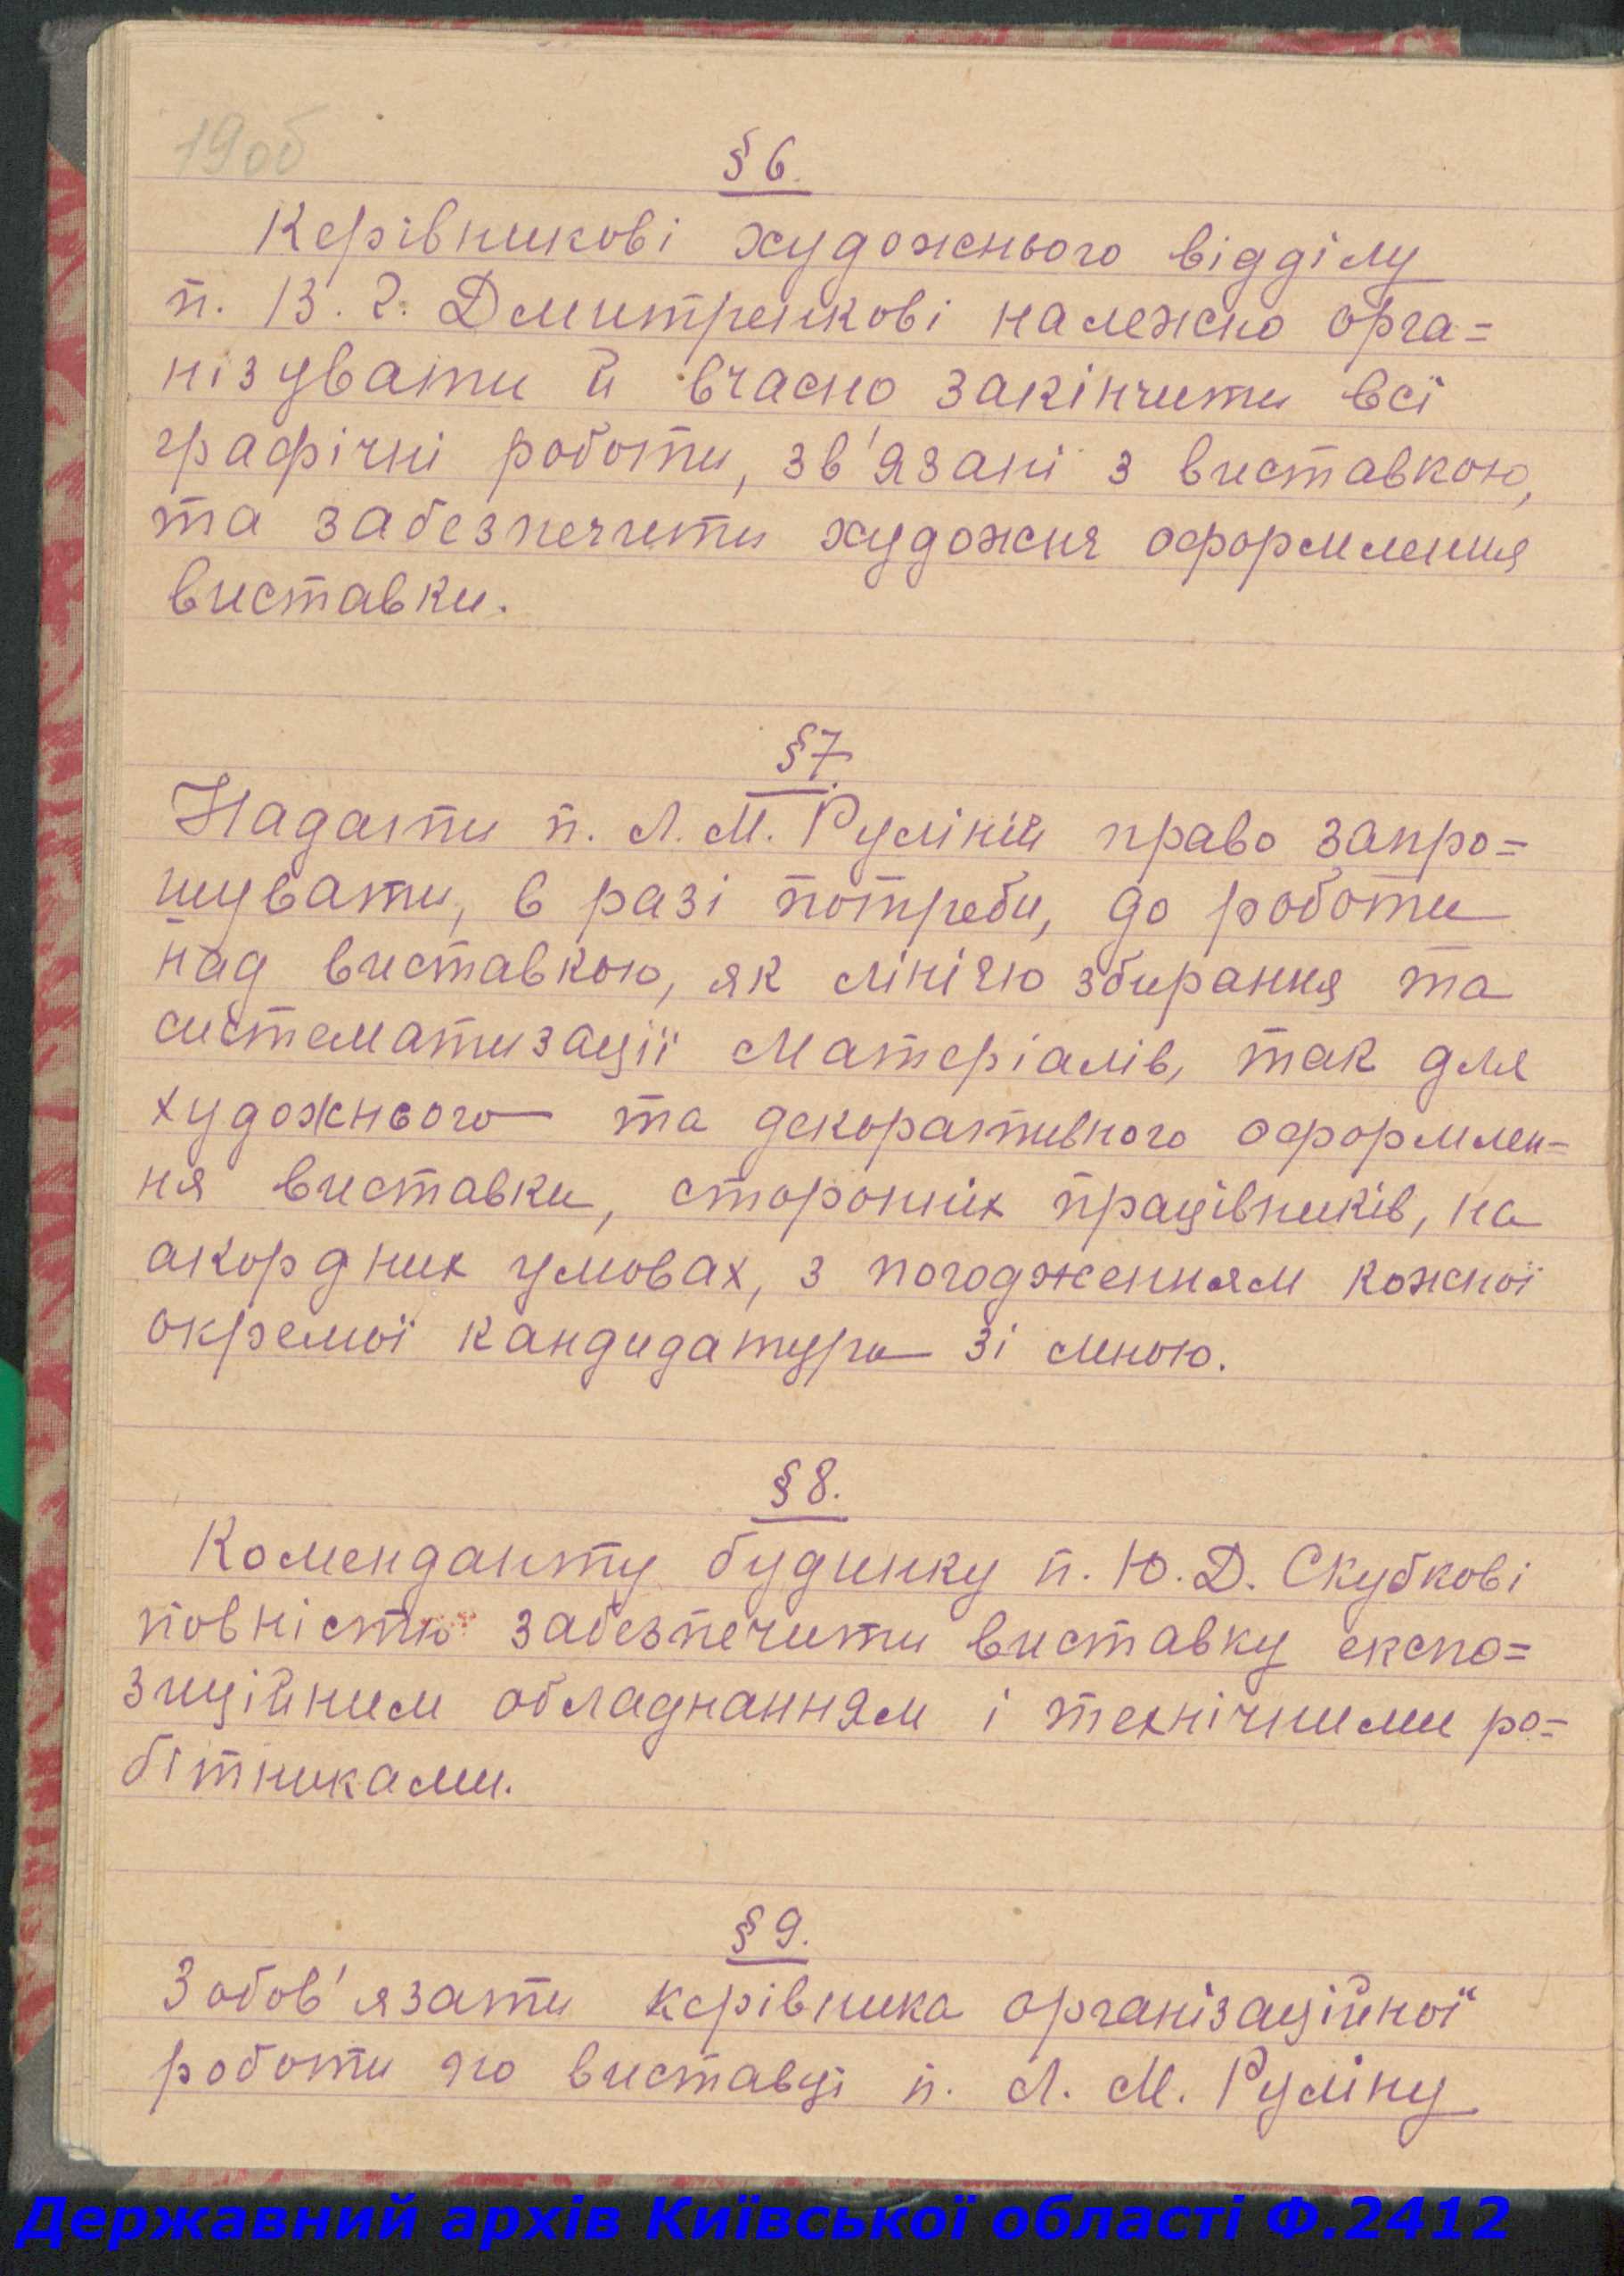 19об
§ 6.
Керівникові художнього відділу
п. В. Г. Дмитренкові належно орга=
нізувати й вчасно закінчити всі
графічні роботи, зв'язані з виставкою,
та забезпечити художнє оформлення
виставки.
§ 7.
Надати п. Л. М. Руліній право запро=
шувати, в разі потреби, до роботи
над виставкою, як лінією збирання та
систематизації матеріалів, так для
художнього та декоративного оформлен=
ня виставки, сторонніх працівників, на
акордних умовах, з погодженням кожної
окремої кандидатури зі мною.
§ 8.
Коменданту будинку п. Ю. Д. Скубкові
повністю забезпечити виставку експо=
зиційним обладнанням і технічними ро=
бітниками.
§ 9.
Зобов'язати керівника організаційної
роботи по виставці п. Л. М. Руліну
Державний архів Київської області Ф.2412